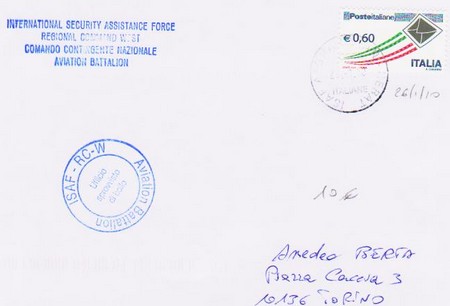 INTERNATIONAL SECURITY ASSISTANCE FORCE
REGIONAL COMMAND WEST
COMANDO CONTINGENTE NAZIONALE
AVIATION BATTALION
Posteitaliane
€ 0,60
ITALIA
HERAT
26/1/10
ISAF - RC-W
Aviation Battalion
Ufficio
di
10 €
Amedeo BERTA
Piazza 3
10136 TORINO